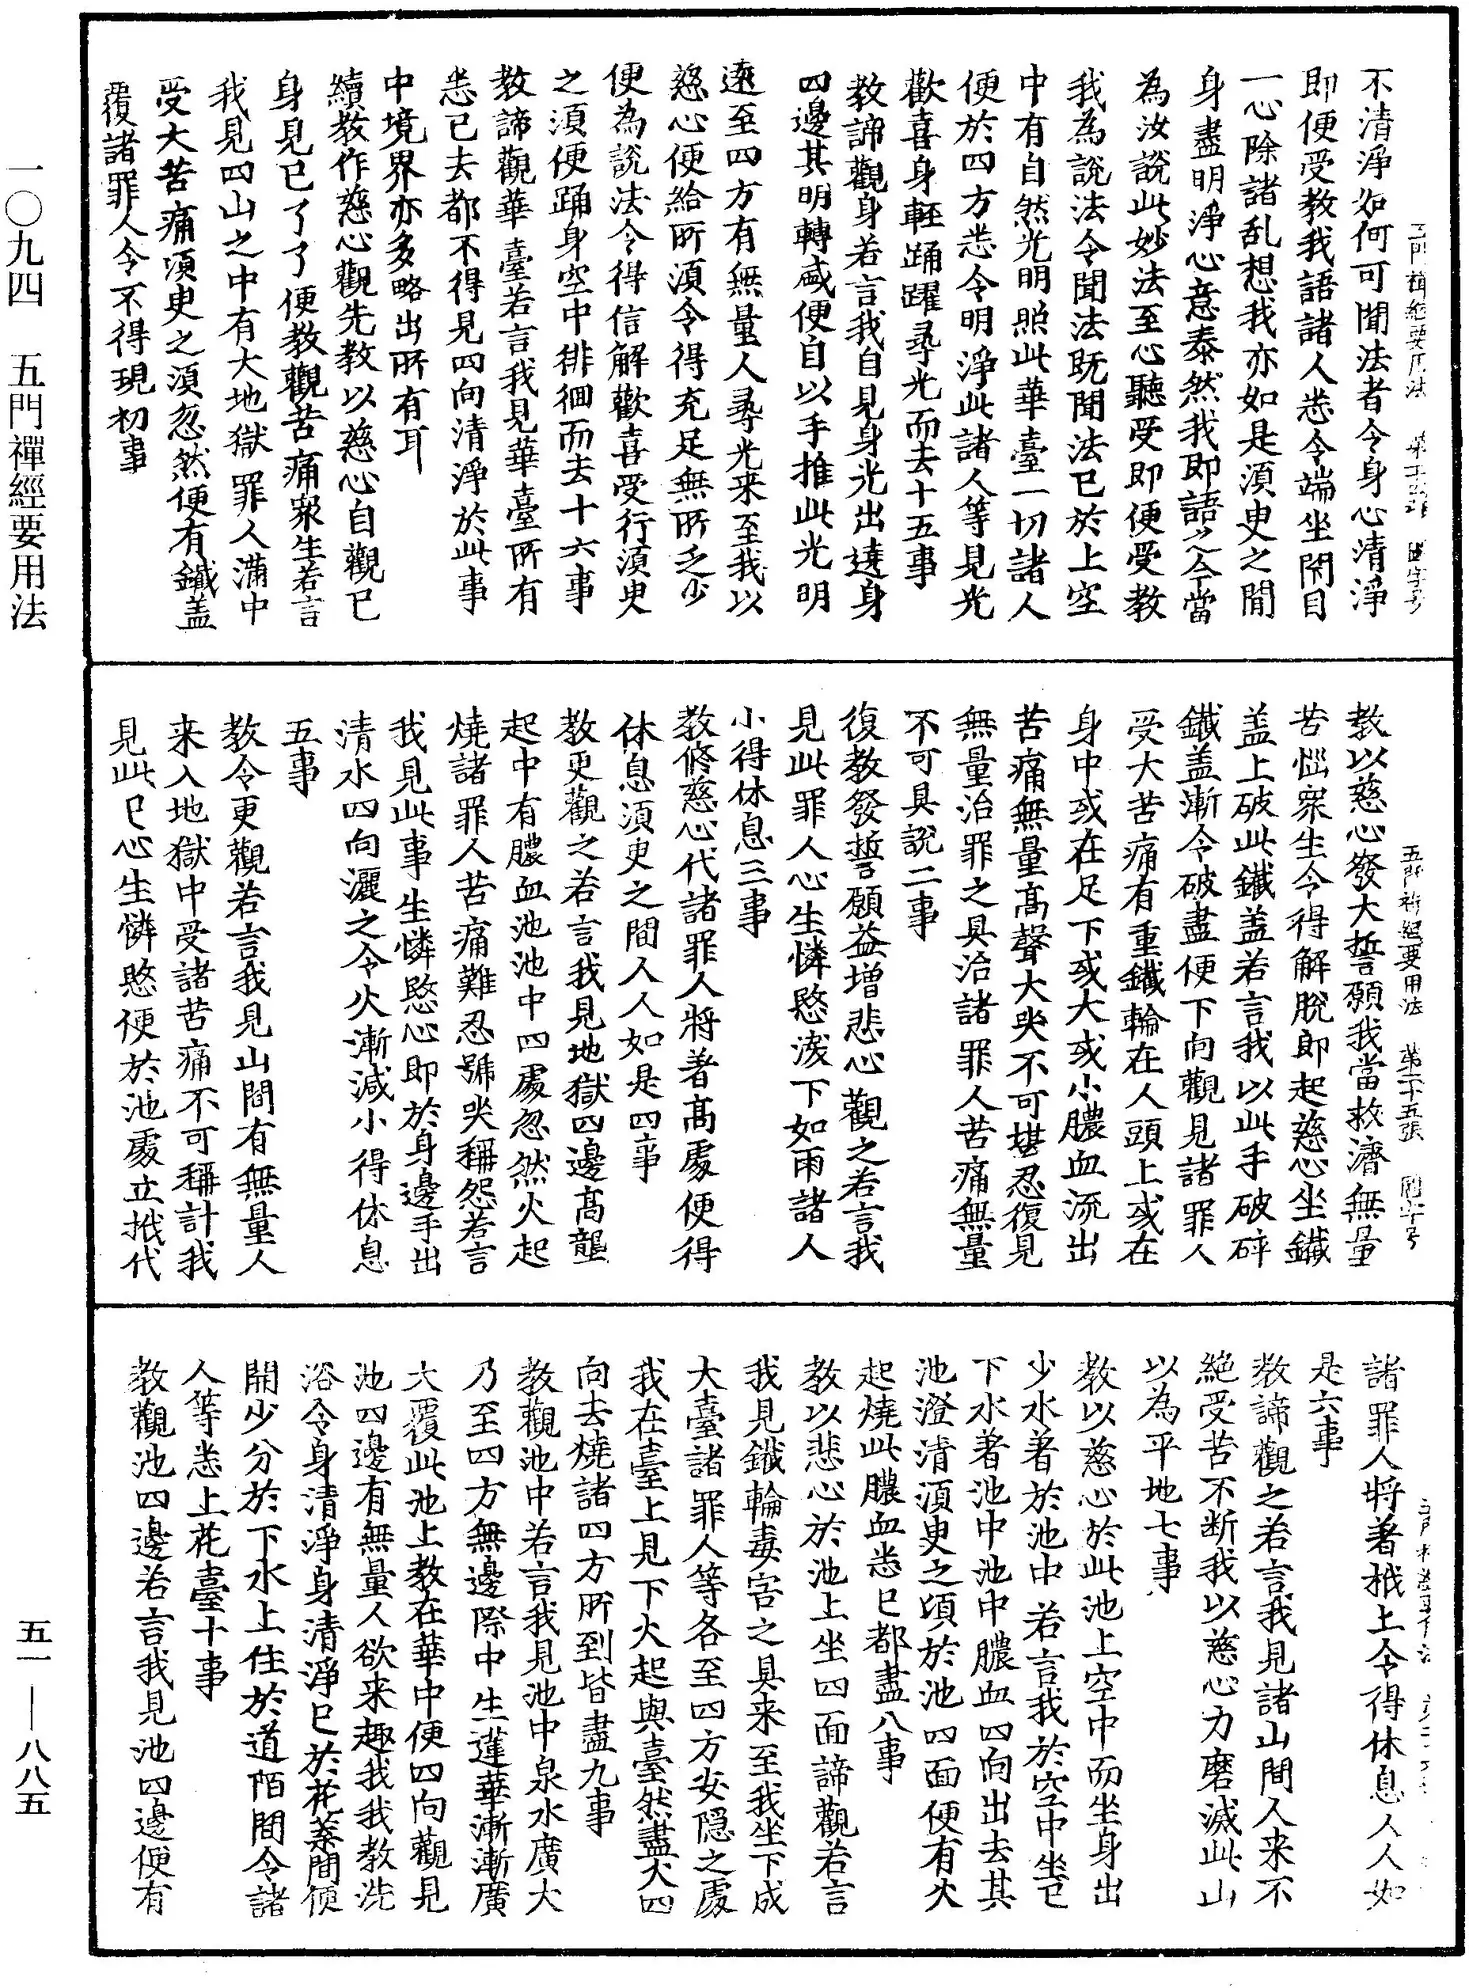 一〇九四　五門禪經要用法
不清淨如何可聞法者令身心清淨
即便受教我語諸人悉令端坐閇目
一心除諸乱想我亦如是湏臾之間
身盡明淨心意泰然我即語之今當
為汝說此妙法至心聽受即便受教
我為說法令聞法既聞法已於上空
中有自然光明照此華臺一切諸人
便於四方悉令明淨此諸人等見光
歡喜身輕踊躍尋光而去十五事
教諦觀身若言我自見身光出遶身
四邊其明轉盛便自以手推此光明
遠至四方有無量人尋光来至我以
慈心便給所湏令得充足無所乏少
便為說法令得信解歡喜受行湏臾
之湏便踊身空中徘徊而去十六事
教諦觀華臺若言我見華臺所有
悉已去都不得見四向清淨於此事
中境界亦多略出所有耳
續教作慈心觀先教以慈心自觀已
身見已了了便教觀苦痛衆生若言
我見四山之中有大地獄罪人滿中
受大苦痛湏臾之湏忽然便有鐵盖
覆諸罪人令不得現初事
五門禪經要用法　第二十五張
教以慈心發大誓願我當救濟無量
苦惱衆生令得解脫即起慈心坐鐵
盖上破此鐵盖若言我以此手破碎
鐵盖漸令破盡便下向觀見諸罪人
受大苦痛有重鐵輪在人頭上或在
身中或在足下或大或小膿血流出
苦痛無量髙聲大哭不可堪忍復見
無量治罪之具治諸罪人苦痛無量
不可具說二事
復教發誓願益增悲心觀之若言我
見此罪人心生憐愍淚下如雨諸人
小得休息三事
教脩慈心代諸罪人將著髙處便得
休息湏臾之間人人如是四事
教更觀之若言我見地獄四邊髙壟
起中有膿血池池中四處忽然火起
燒諸罪人苦痛難忍號哭稱怨若言
我見此事生憐愍心即於身邊手出
清水四向灑之令火漸減小得休息
五事
教令更觀若言我見山間有無量人
来入地獄中受諸苦痛不可稱計我
見此已心生憐愍便於池處立柢代
諸罪人將著柢上令得休息人人如
是六事
教諦觀之若言我見諸山間人来不
絕受苦不断我以慈心力磨滅此山
以為平地七事
教以慈心於此池上空中而坐身出
少水著於池中若言我於空中坐已
下水著池中池中膿血四向出去其
池澄清湏臾之頃於池四面便有火
起燒此膿血悉已都盡八事
教以悲心於池上坐四面諦觀若言
我見鐵輪毒害之具来至我坐下成
大臺諸罪人等各至四方安隱之處
我在臺上見下火起與臺然盡火四
向去燒諸四方所到皆盡九事
教觀池中若言我見池中泉水廣大
乃至四方無邊際中生蓮華漸漸廣
大覆此池上教在華中便四向觀見
池四邊有無量人欲来趣我我教洗
浴令身清淨身清淨已於花葉間便
開少分於下水上住於道陌間令諸
人等悉上花臺十事
教觀池四邊若言我見池四邊便有
五一—八八五